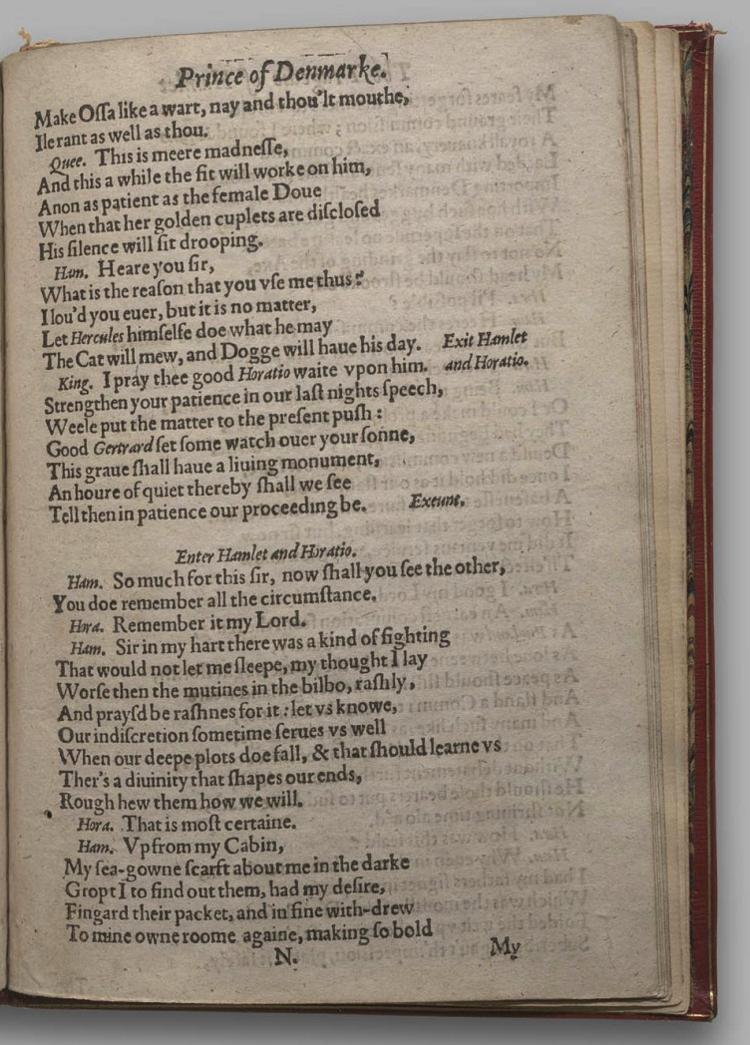 Prince of Denmarke.
Make Oſſa like a wart, nay and thou'lt mouthe,
Ile rant as well as thou.
Quee. This is meere madneſſe,
And this a while the fit will worke on him,
Anon as patient as the female Doue
When that her golden cuplets are diſcloſed
His ſilence will ſit drooping.
Ham. Heare you ſir,
What is the reaſon that you vſe me thus?
I lou'd you euer, but it is no matter,
Let Hercules himſelfe doe what he may
The Cat will mew, and Dogge will haue his day. Exit Hamlet
King. I pray thee good Horatio waite vpon him. and Horatio.
Strengthen your patience in our laſt nights ſpeech,
Weele put the matter to the preſent puſh:
Good Gertrard ſet ſome watch ouer your ſonne,
This graue ſhall haue a liuing monument,
An houre of quiet thereby ſhall we ſee
Tell then in patience our proceeding be. Exeunt.
Enter Hamlet and Horatio.
Ham. So much for this ſir, now ſhall you ſee the other,
You doe remember all the circumſtance.
Hora. Remember it my Lord.
Ham. Sir in my hart there was a kind of fighting
That would not let me ſleepe, my thought I lay
Worſe then the mutines in the bilbo, raſhly,
And prayſd be raſhnes for it: let vs knowe,
Our indiſcretion ſometime ſerues vs well
When our deepe plots doe fall, & that ſhould learne vs
Ther's a diuinity that ſhapes our ends,
Rough hew them how we will.
Hora. That is moſt certaine.
Ham. Vp from my Cabin,
My ſea-gowne ſcarft about me in the darke
Gropt I to find out them, had my deſire,
Fingard their packet, and in fine with-drew
To mine owne roome againe, making ſo bold
N. My